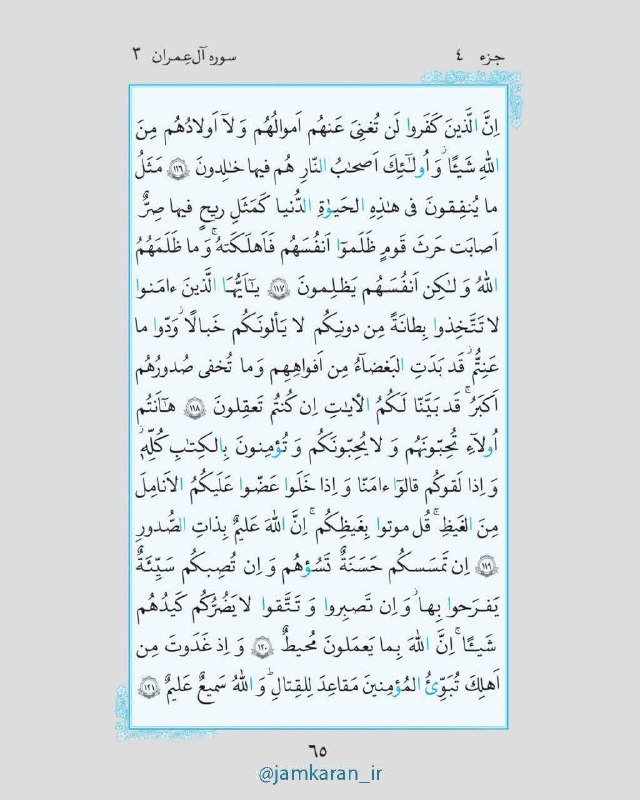 جزء ٤
سوره آل‌عِمران ٣
اِنَّ الَّذینَ کَفَروا لَن تُغنِیَ عَنهُم اَموالُهُم وَ لَآ اَولادُهُم مِنَ
اللهِ شَیـًٔا ۖ وَ اُولـٰئِکَ اَصحابُ النّارِ هُم فیها خالِدونَ ﴿١١٦﴾ مَثَلُ
ما یُنفِقونَ فی هـٰذِهِ الحَیوٰةِ الدُّنیا کَمَثَلِ ریحٍ فیها صِرٌّ
اَصابَت حَرثَ قَومٍ ظَلَموٓا اَنفُسَهُم فَاَهلَکَتهُ ۚ وَ ما ظَلَمَهُمُ
اللهُ وَ لـٰکِن اَنفُسَهُم یَظلِمونَ ﴿١١٧﴾ یـٰٓاَیُّهَا الَّذینَ ءامَنوا
لا تَتَّخِذوا بِطانَةً مِن دونِکُم لا یَألونَکُم خَبالًا ۖ وَدّوا ما
عَنِتُّم ۖ قَد بَدَتِ البَغضآءُ مِن اَفواهِهِم وَ ما تُخفی صُدورُهُم
اَکبَرُ ۚ قَد بَیَّنّا لَکُمُ الأیـٰتِ اِن کُنتُم تَعقِلونَ ﴿١١٨﴾ هـٰٓاَنتُم
اُولآءِ تُحِبّونَهُم وَ لا یُحِبّونَکُم وَ تُؤمِنونَ بِالکِتـٰبِ کُلِّهِ ۚ
وَ اِذا لَقوکُم قالوٓا ءامَنّا وَ اِذا خَلَوا عَضّوا عَلَیکُمُ الاَنامِلَ
مِنَ الغَیظِ ۚ قُل موتوا بِغَیظِکُم ۗ اِنَّ اللهَ عَلیمٌ بِذاتِ الصُّدورِ
﴿١١٩﴾ اِن تَمسَسکُم حَسَنَةٌ تَسُؤهُم وَ اِن تُصِبکُم سَیِّئَةٌ
یَفرَحوا بِها ۖ وَ اِن تَصبِروا وَ تَتَّقوا لا یَضُرُّکُم کَیدُهُم
شَیـًٔا ۗ اِنَّ اللهَ بِما یَعمَلونَ مُحیطٌ ﴿١٢٠﴾ وَ اِذ غَدَوتَ مِن
اَهلِکَ تُبَوِّئُ المُؤمِنینَ مَقاعِدَ لِلقِتالِ ۗ وَ اللهُ سَمیعٌ عَلیمٌ ﴿١٢١﴾
٦٥
@jamkaran_ir